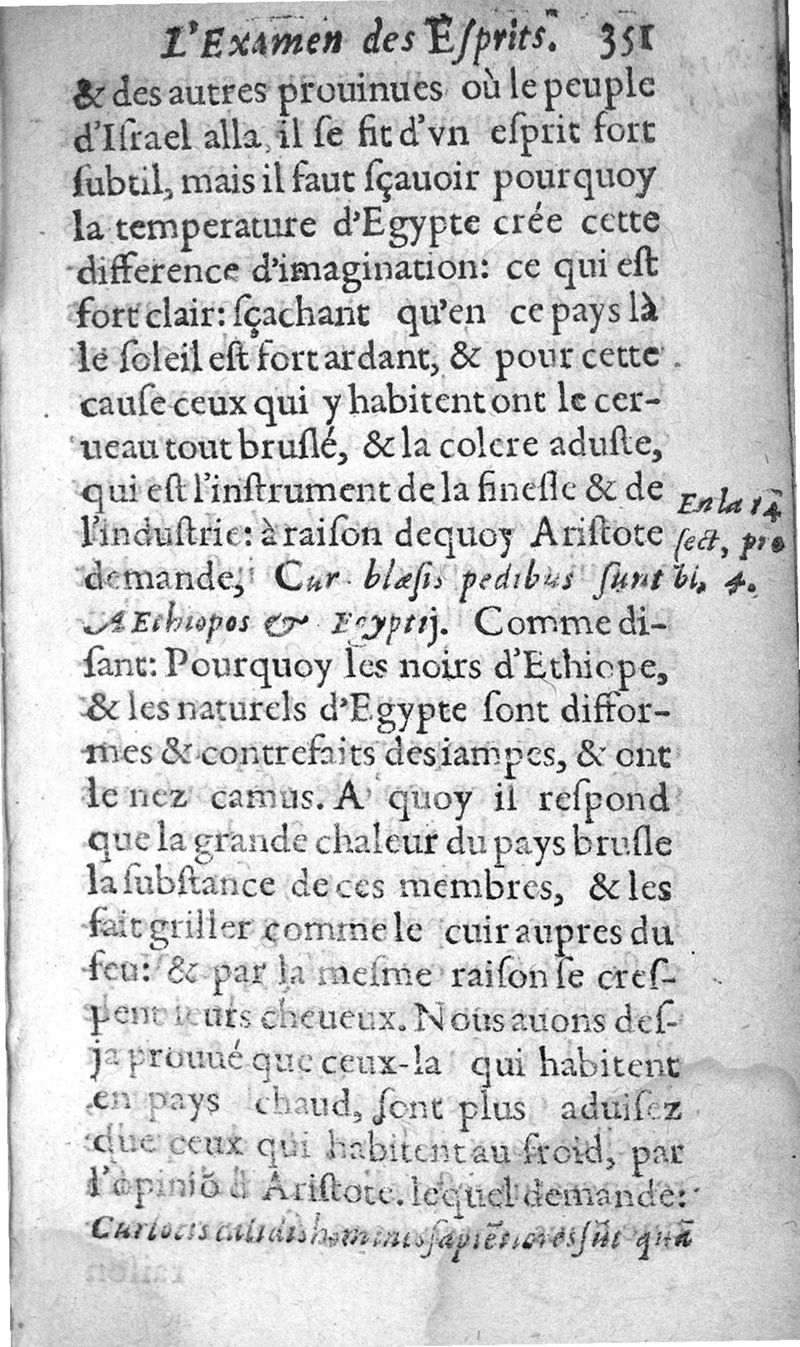 L'Examen des Eſprits. 351
& des autres prouinues où le peuple
d'Iſrael alla, il ſe fit d'vn eſprit fort
ſubtil, mais il faut ſçauoir pourquoy
la temperature d'Egypte crée cette
difference d'imagination: ce qui eſt
fort clair: ſçachant qu'en ce pays là
le ſoleil eſt fort ardant, & pour cette
cauſe ceux qui y habitent ont le cer-
ueau tout bruſlé, & la colere aduſte,
qui eſt l'inſtrument de la fineſſe & de
l'induſtrie: à raiſon dequoy Ariſtote
demande, Cur blæſis pedibus ſunt
AEthiopes & Egyptij. Comme di-
ſant: Pourquoy les noirs d'Ethiope,
& les naturels d'Egypte ſont diffor-
mes & contrefaits des iampes, & ont
le nez camus. A quoy il reſpond
que la grande chaleur du pays bruſle
la ſubſtance de ces membres, & les
fait griller comme le cuir aupres du
feu: & par la meſme raiſon ſe creſ-
pent leurs cheueux. Nous auons deſ-
ja prouué que ceux-la qui habitent
en pays chaud, ſont plus aduiſez
que ceux qui habitent au froid, par
l'opiniõ d'Ariſtote. lequel demande:
Cur locis calidis homines ſapiẽtiores ſũt quã
En la 14
ſect, pro
bl, 4.